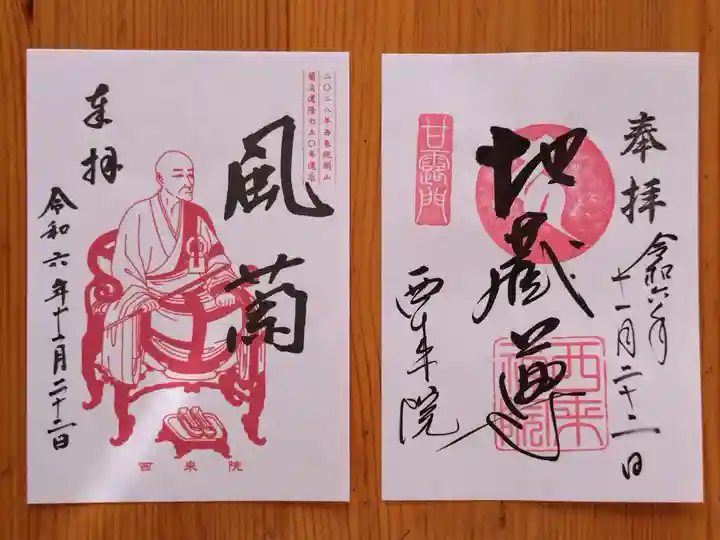 二〇二八年西来院開山
蘭渓道隆七五〇年遠忌
風
蘭
奉拝
令和六年十一月二十二日
西来院
奉拝
令和六年
十一月二十二日
地蔵尊
甘露門
西来院
西来院印